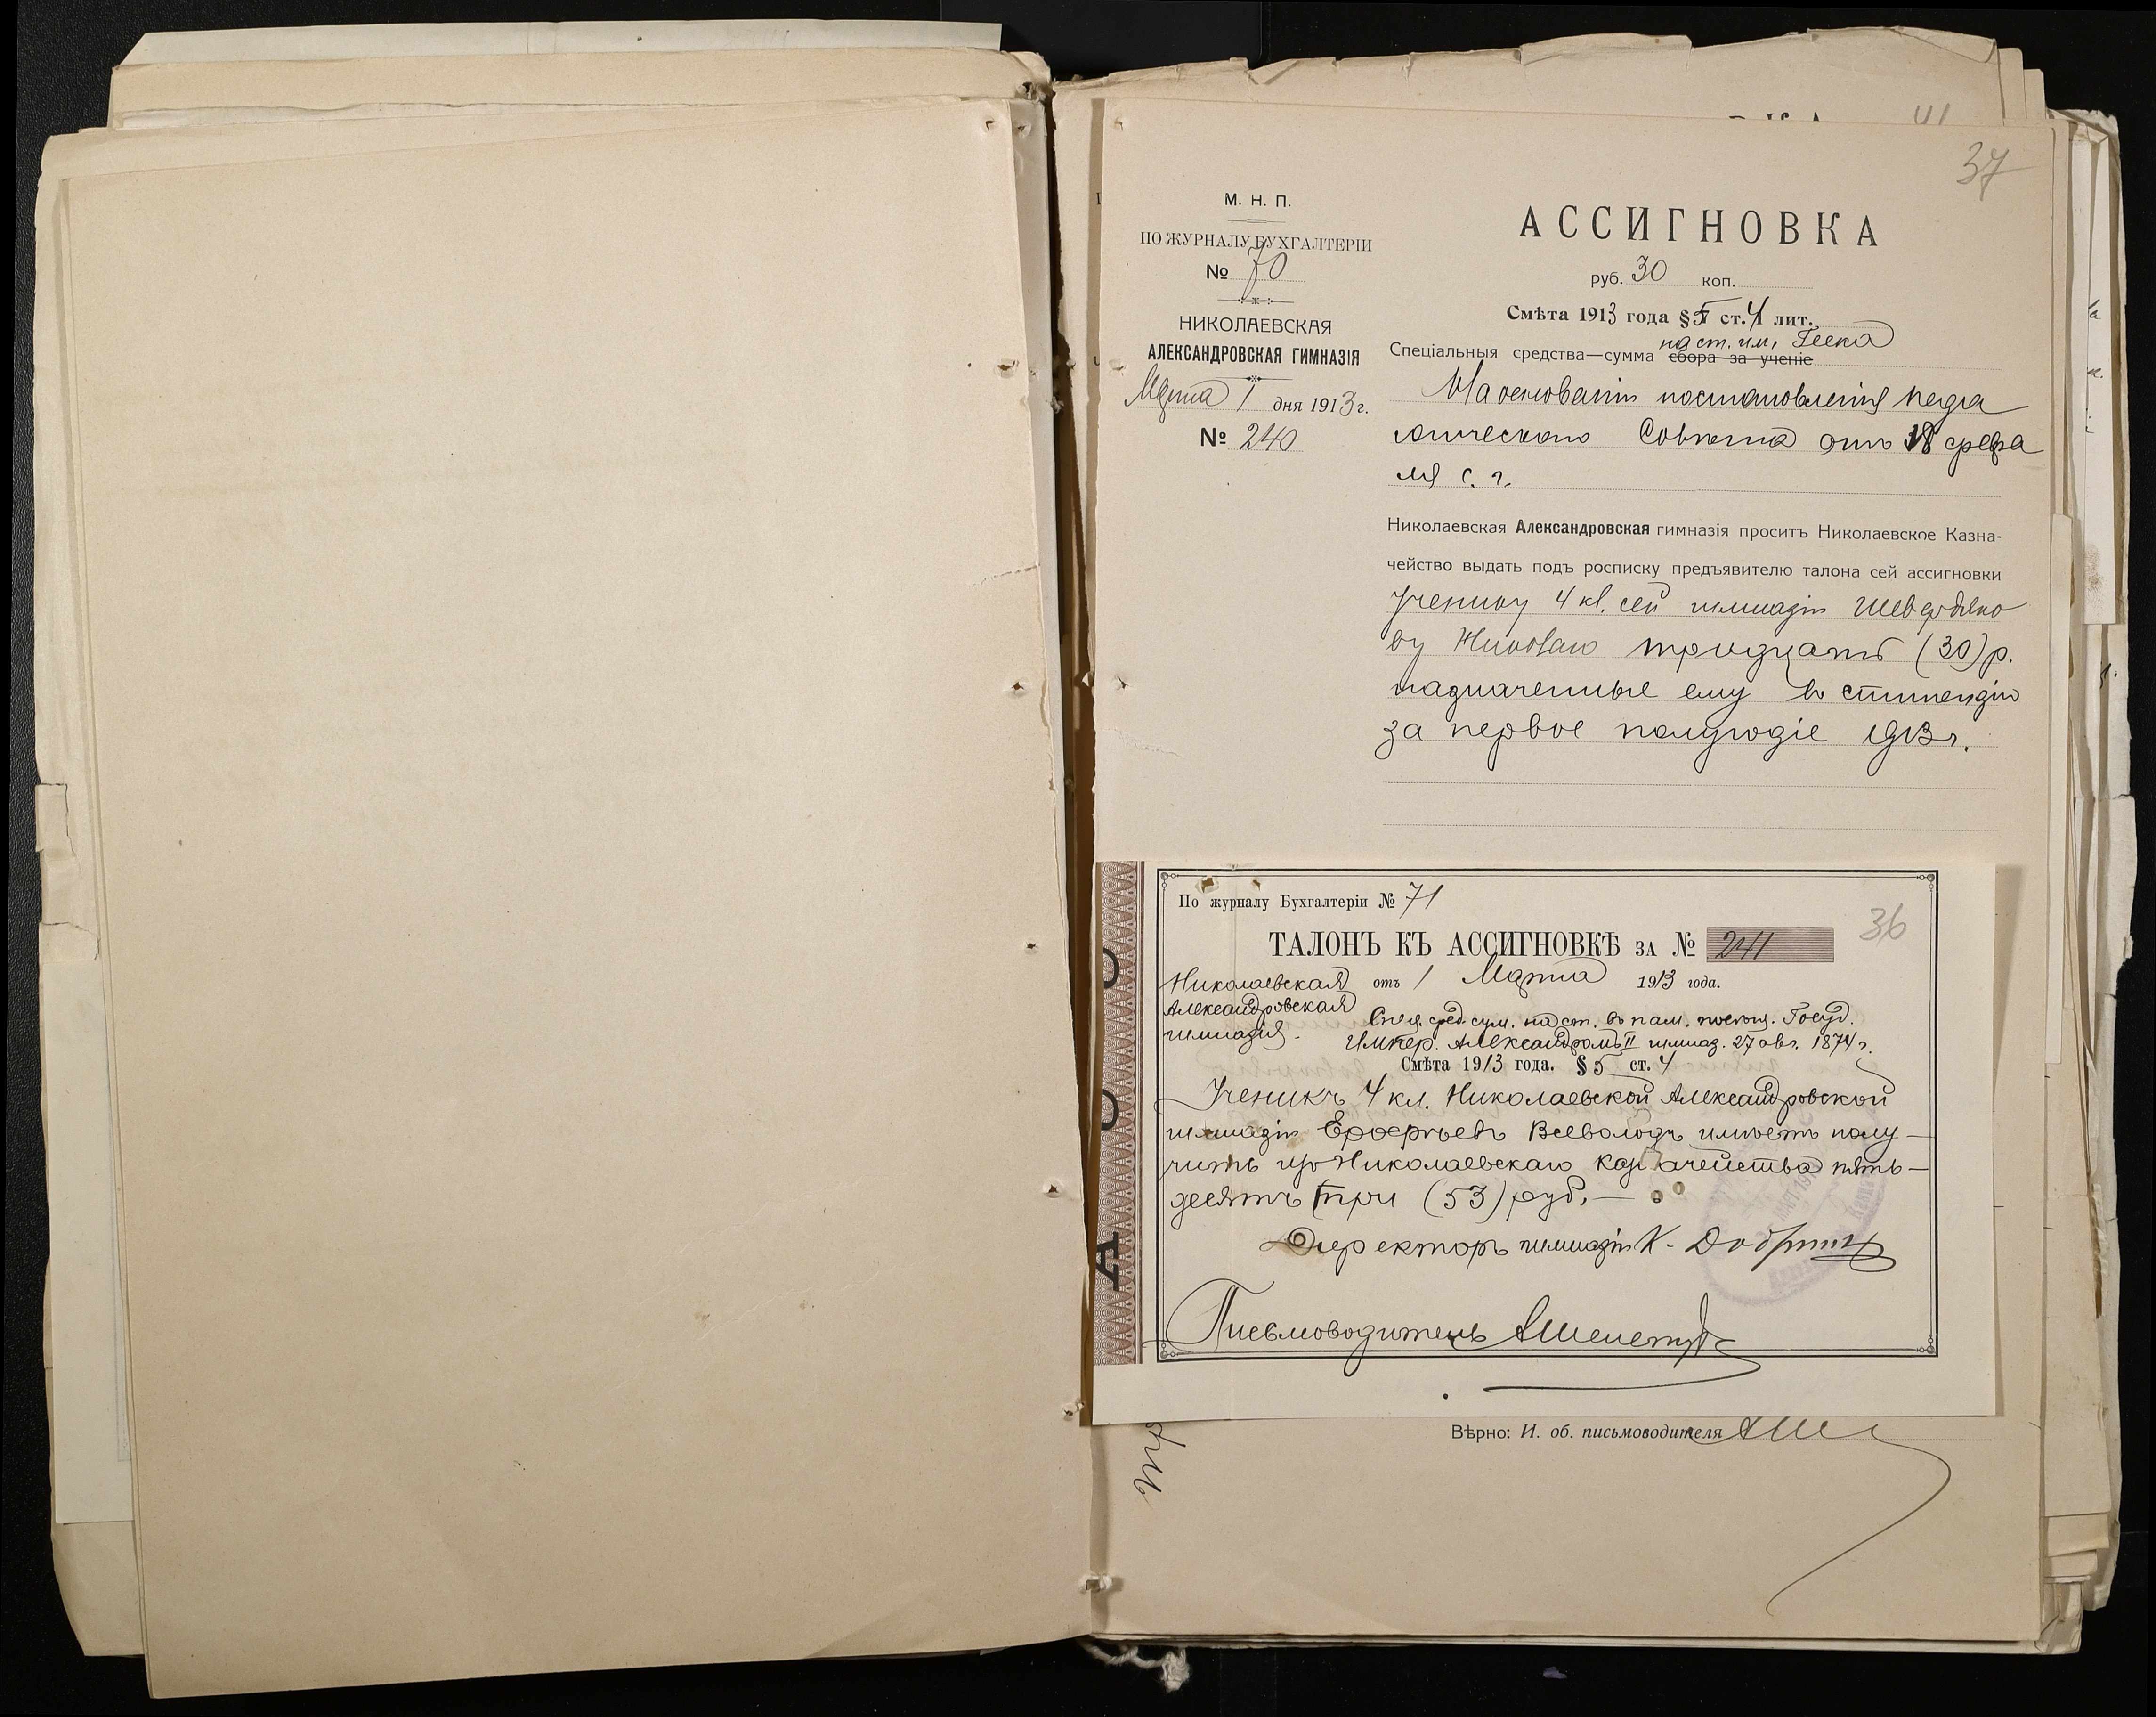 41
37
М. Н. П.
ПО ЖУРНАЛУ БУХГАЛТЕРІИ
№ 70
НИКОЛАЕВСКАЯ
АЛЕКСАНДРОВСКАЯ ГИМНАЗІЯ
Марта 1 дня 1913 г.
№ 240
АССИГНОВКА
руб. 30 коп.
Смѣта 1913 года § 5 ст. 4 лит.
на ст. им. Геека
Спеціальныя средства—сумма сбора за ученіе
На основаніи постановленія педаго
гическаго Совѣта отъ 18 февра
ля с. г.
Николаевская Александровская гимназія проситъ Николаевское Казна-
чейство выдать подъ росписку предъявителю талона сей ассигновки
Ученику 4 кл. сей гимназіи Шевердяко
ву Николаю тридцать (30) р.
назначенные ему въ стипендію
за первое полугодіе 1913 г.
По журналу Бухгалтеріи № 71
36
ТАЛОНЪ КЪ АССИГНОВКѢ ЗА № 241
Николаевская отъ 1 Марта 1913 года.
Александровская
гимназія.
Спец. сред. сум. на ст. въ пам. посѣщ. Госуд.
Импер. Александромъ II гимназ. 27 авг. 1874 г.
Смѣта 1913 года. § 5 ст. 4
Ученикъ 4 кл. Николаевской Александровской
гимназіи Ерофеевъ Всеволодъ имѣетъ полу-
чить изъ Николаевскаго казначейства пять-
десятъ три (53) руб. —
Директоръ гимназіи К.
Письмоводитель
Вѣрно: И. об. письмоводителя